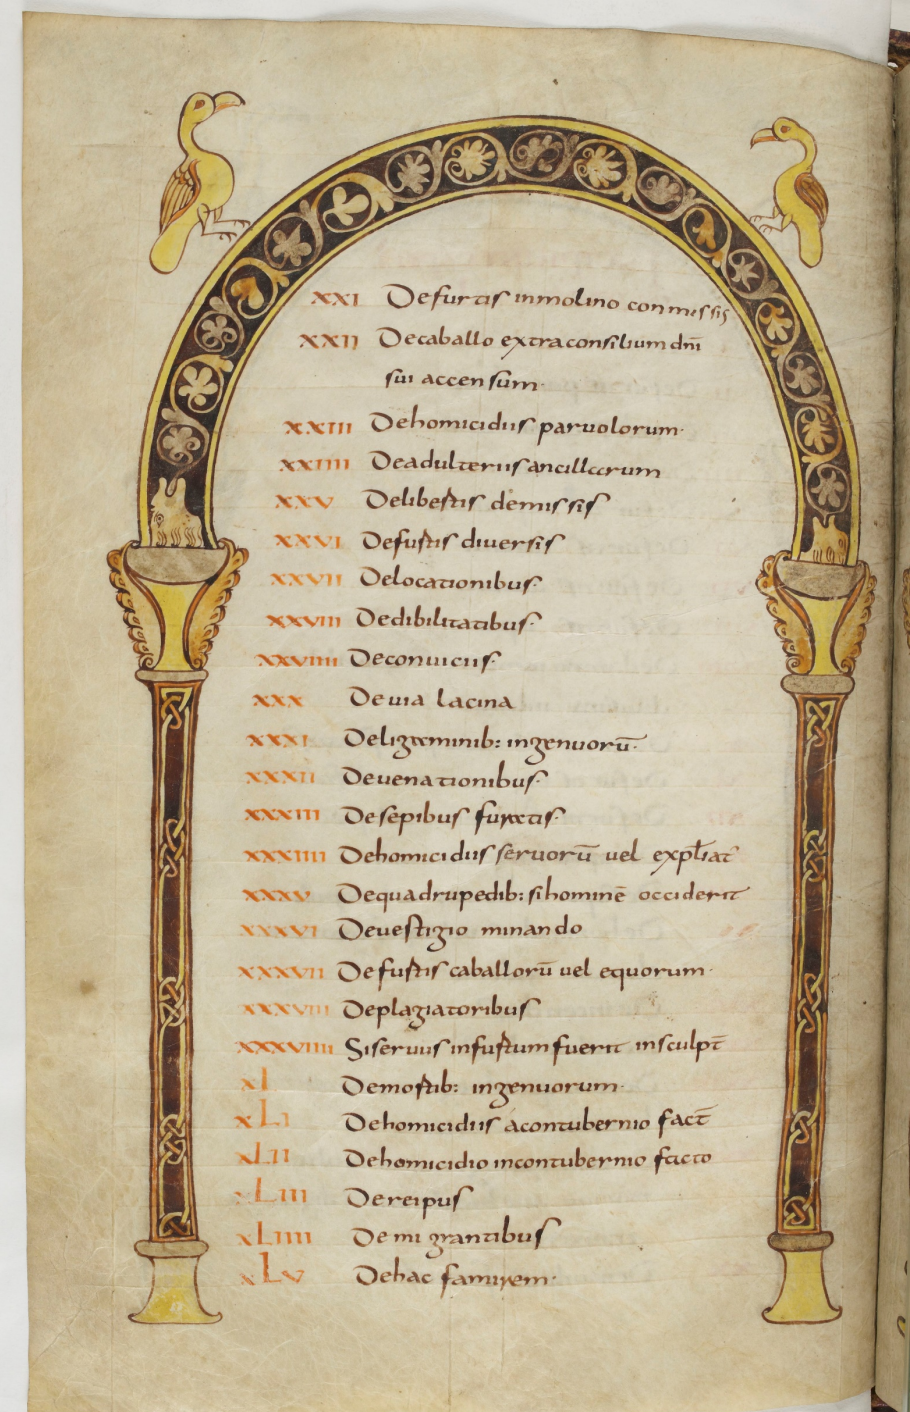 XXI Defurtis inmolino conmissis
XXII Decaballo extraconsilium dnī
sui accensum·
XXIII Dehomicidiis paruolorum·
XXIIII Deadulteriis ancillarum
XXV Delibestis demissis
XXVI Defustis diuersis
XXVII Delocationibus·
XXVIII Dedibilitatibus·
XXVIIII Deconuiciis·
XXX De uia lacina
XXXI Deligaminib: ingenuorū·
XXXII Deuenationibus·
XXXIII Desepibus furatis·
XXXIIII Dehomicidiis seruorū uel expliat̄
XXXV Dequadrupedib: sihominē occiderit
XXXVI Deuestigio minando
XXXVII Defustis caballorū uel equorum·
XXXVIII Deplagiatoribus
XXXVIIII Siseruus infustum fuerit insculpt̄
XL Demostib: ingenuorum·
XLI Dehomicidiis acontubernio fact̄
XLII Dehomicidio incontubernio facto
XLIII Dereipus
XLIIII De migrantibus
XLV Dehac famirem·